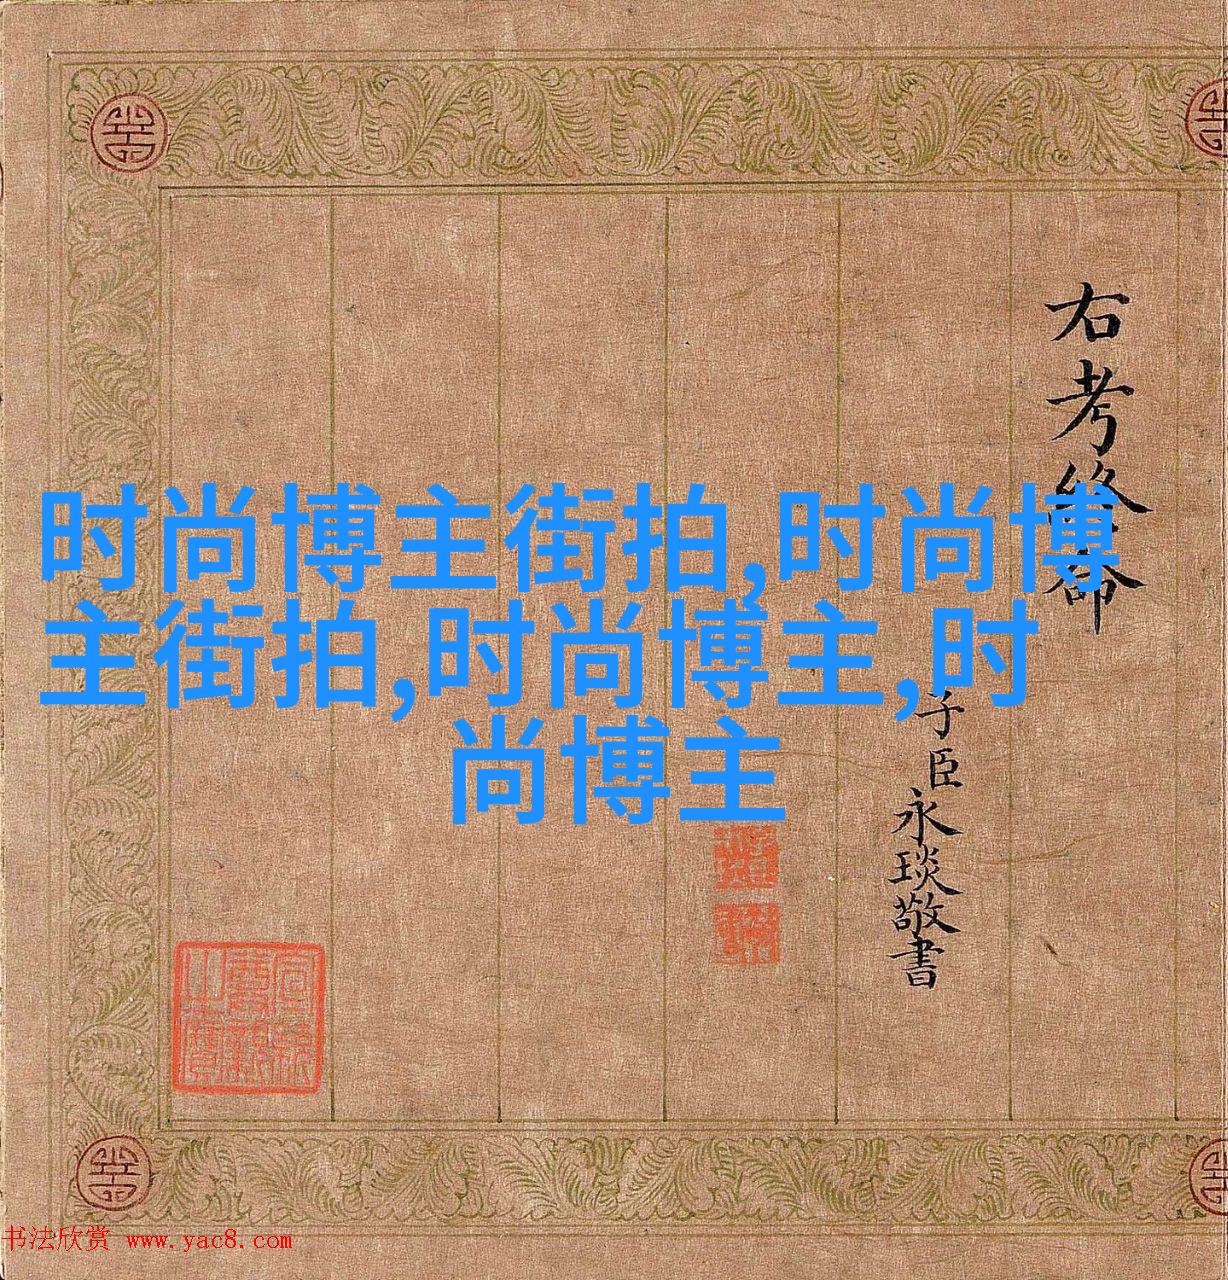 时尚博主街拍,时尚博
主街拍,时尚博主,时
尚博主
右考終命
子臣
永琰敬書
书法欣赏 www.yac8.com